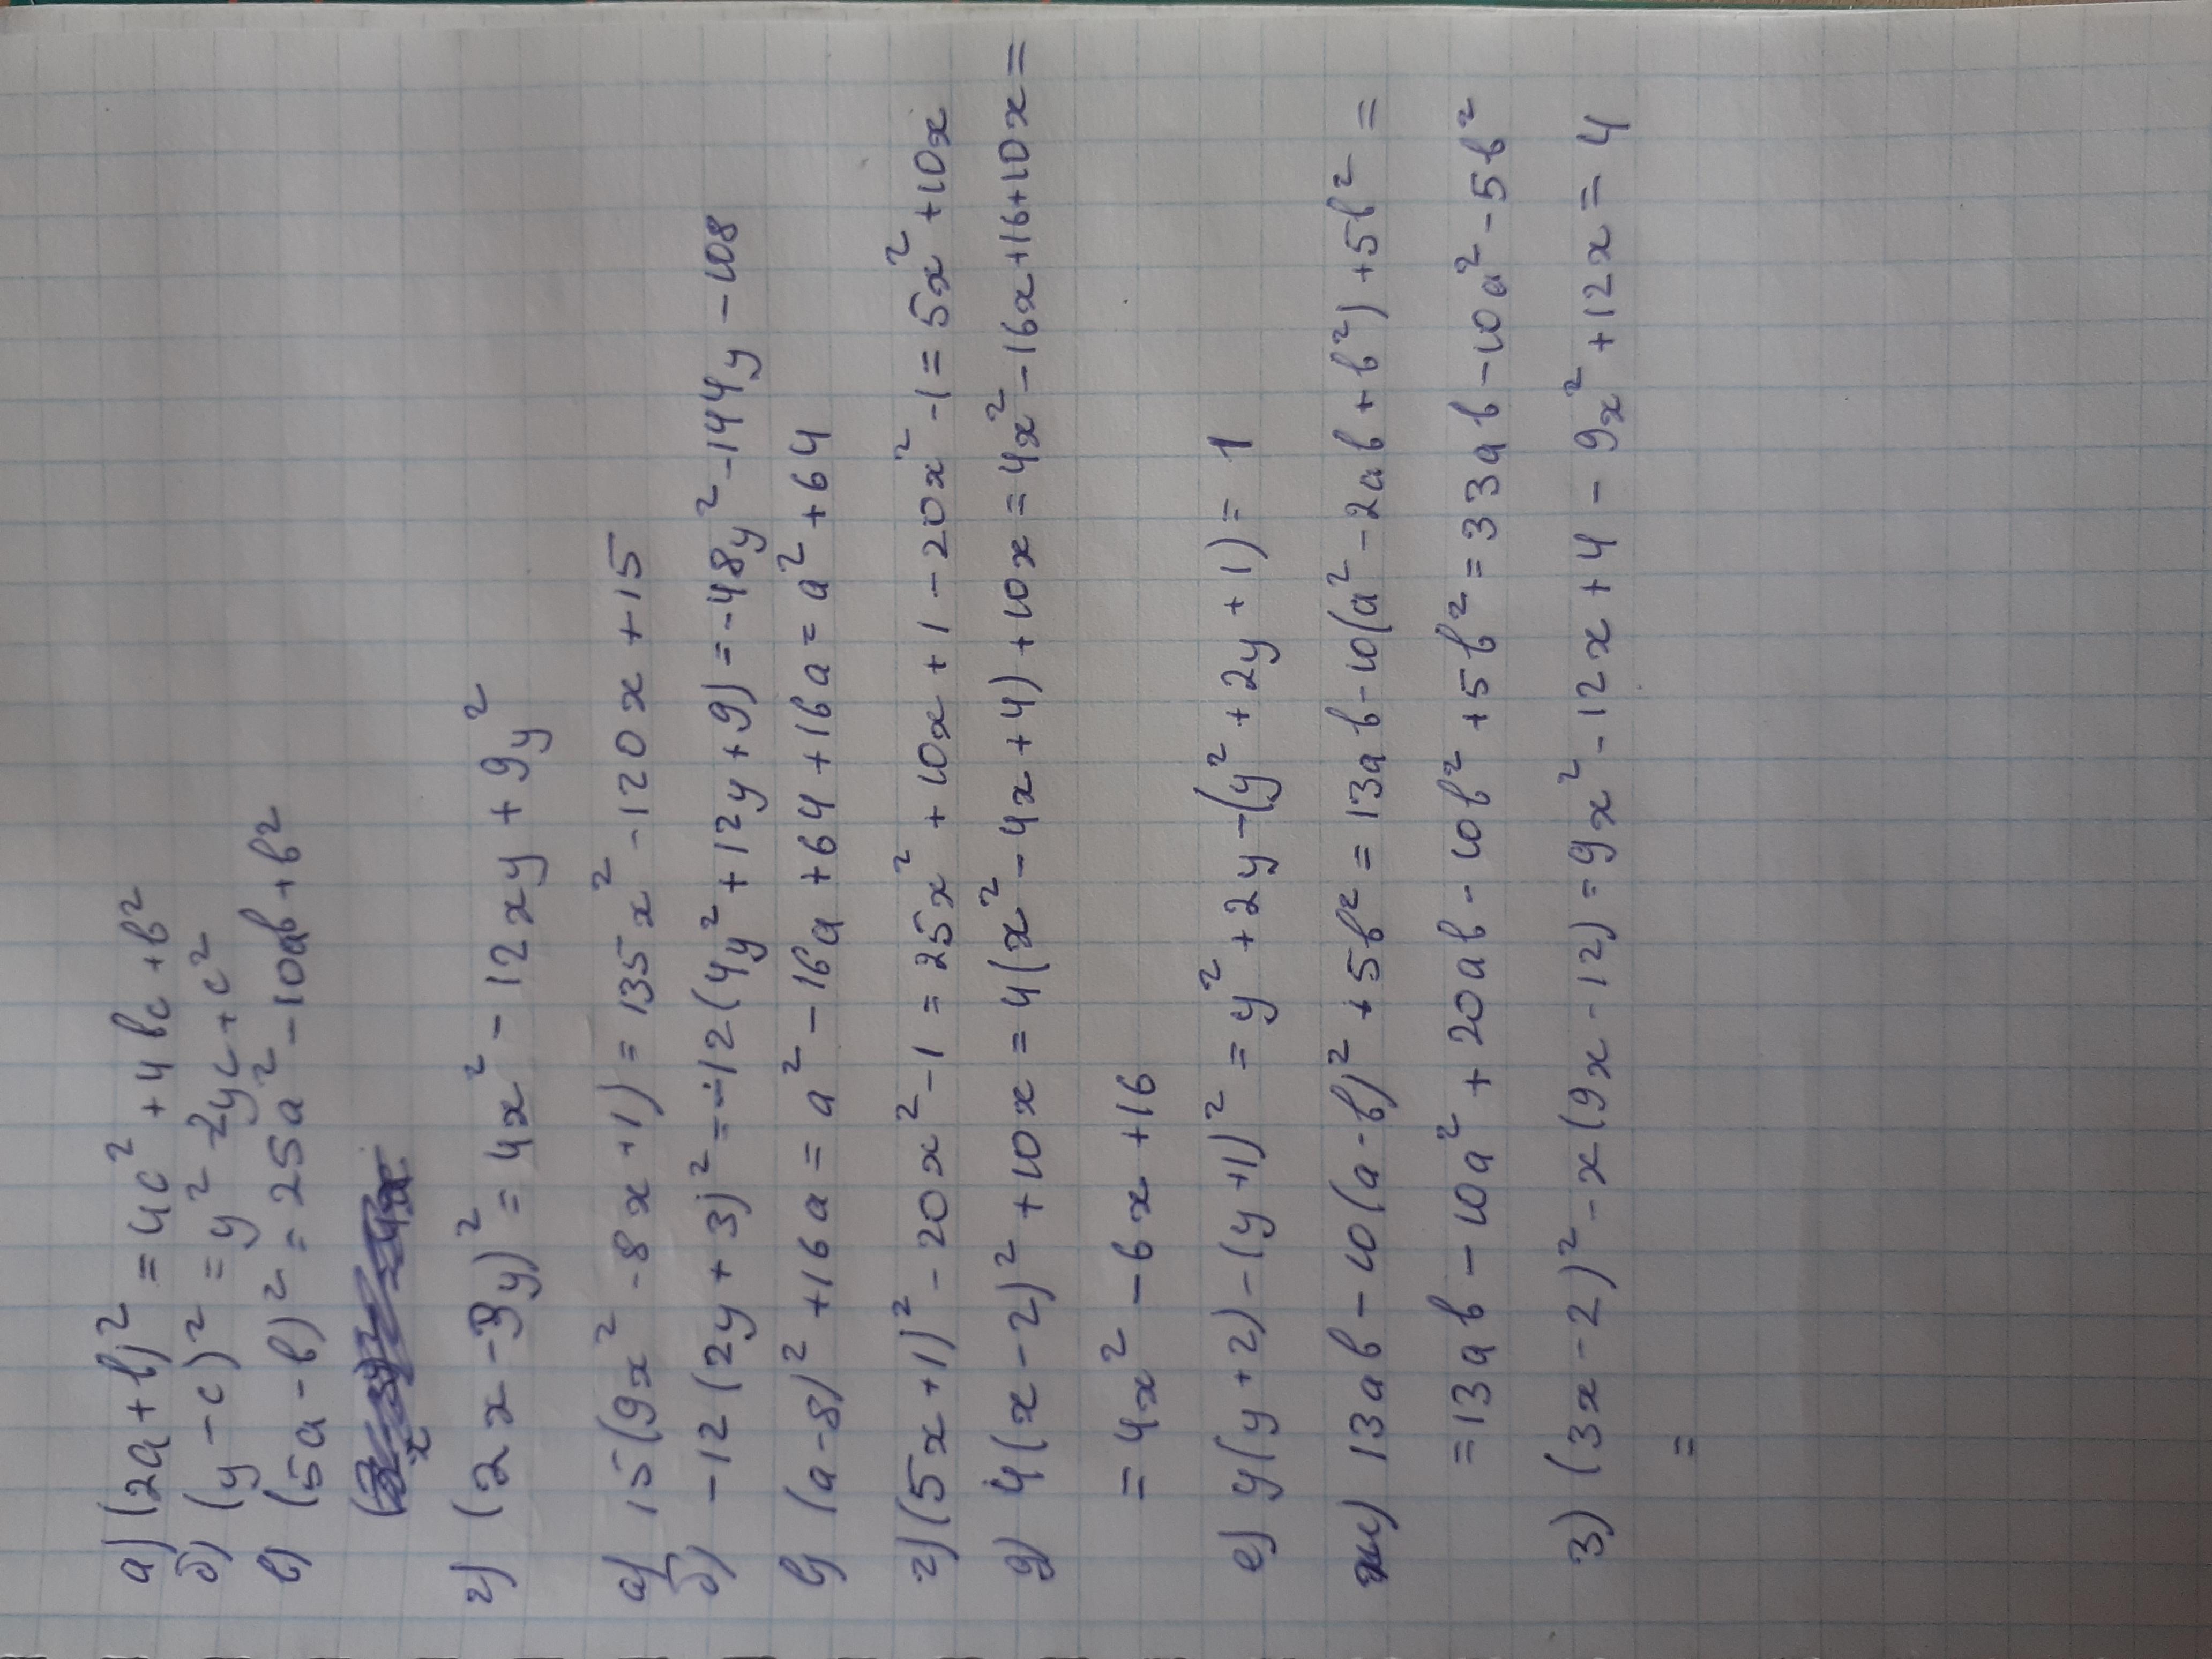 а) (2a+b)² = 4c² + 4bc + b²
б) (y-c)² = y² - 2yc + c²
в) (5a-b)² = 25a² - 10ab + b²
г) (2x-3y)² = 4x² - 12xy + 9y²
а) 15(9x² - 8x + 1) = 135x² - 120x + 15
б) -12(2y+3)² = -12(4y² + 12y + 9) = -48y² - 144y - 108
в) (a-8)² + 16a = a² - 16a + 64 + 16a = a² + 64
г) (5x+1)² - 20x² - 1 = 25x² + 10x + 1 - 20x² - 1 = 5x² + 10x
д) 4(x-2)² + 10x = 4(x² - 4x + 4) + 10x = 4x² - 16x + 16 + 10x =
= 4x² - 6x + 16
е) y(y+2) - (y+1)² = y² + 2y - (y² + 2y + 1) = 1
ж) 13ab - 10(a-b)² + 5b² = 13ab - 10(a² - 2ab + b²) + 5b² =
= 13ab - 10a² + 20ab - 10b² + 5b² = 33ab - 10a² - 5b²
з) (3x-2)² - x(9x-12) = 9x² - 12x + 4 - 9x² + 12x = 4
=